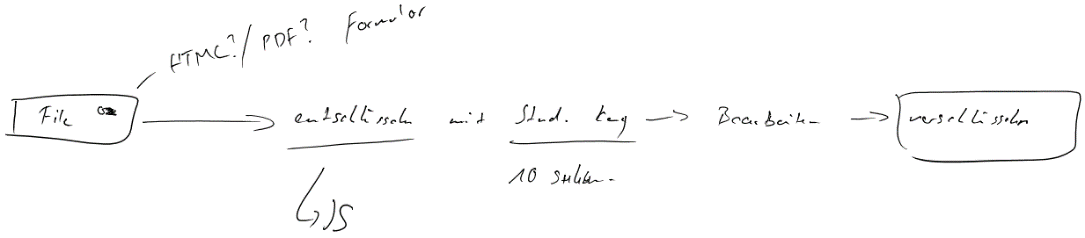 HTML?/PDF? Formular
File
entschlüsseln mit Stud. Key → Bearbeiten → verschlüsseln
JS